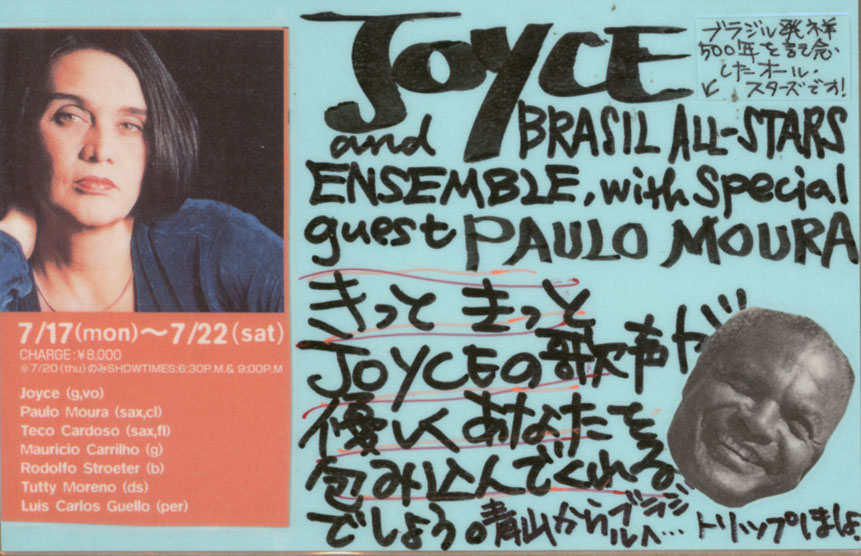 JOYCE
ブラジル発祥
500年を記念
したオール・
スターズです!
and BRASIL ALL-STARS
ENSEMBLE, with Special
guest PAULO MOURA
きっと きっと
JOYCEの歌声が
優しくあなたを
包み込んでくれる
でしょう。青山からブラジルへ… トリップしましょ
7/17(mon)〜7/22(sat)
CHARGE:¥8,000
※7/20(thu)のみSHOWTIMES:6:30P.M.& 9:00P.M
Joyce (g,vo)
Paulo Moura (sax,cl)
Teco Cardoso (sax,fl)
Mauricio Carrilho (g)
Rodolfo Stroeter (b)
Tutty Moreno (ds)
Luis Carlos Guello (per)